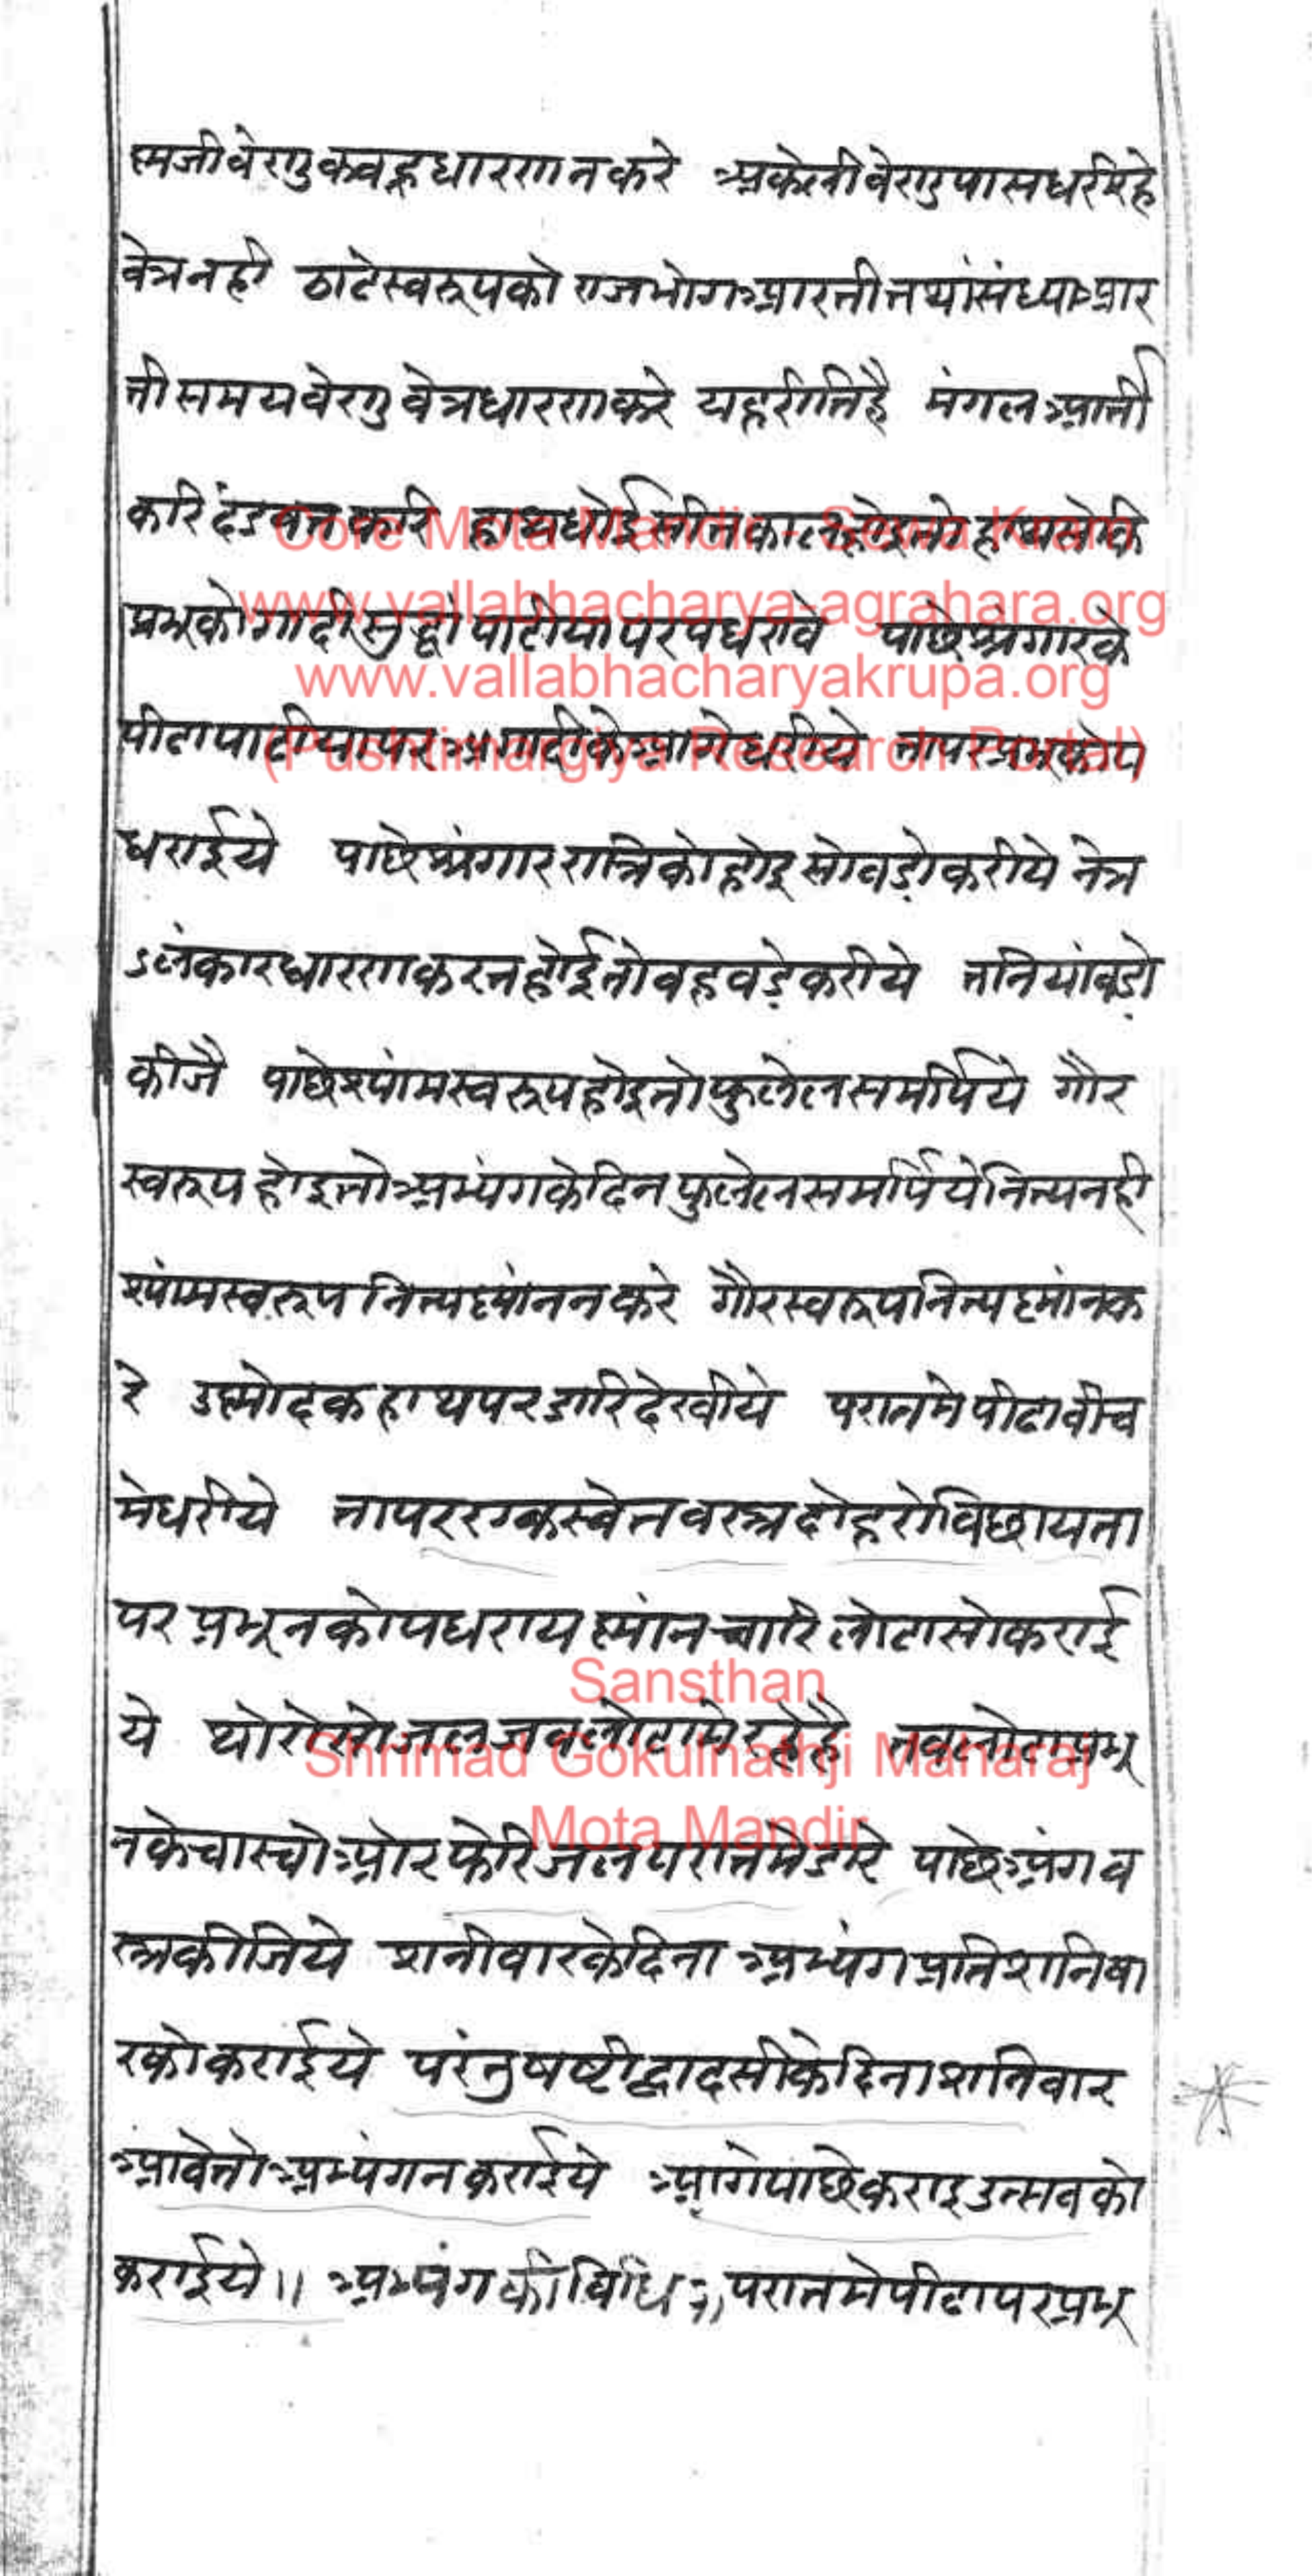 ष्मजी वेणु कवहू धारण न करे अकेली वेणु पास धरी रहे
वेत्र नही ठाढे स्वरूप को राजभोग आरती तथां संध्या आर
ती समय वेणु वेत्र धारण करे यह रीति है मंगल आर्ती
करि दंडवत करि हाथ धोई
प्रभू को गादी सुद्धां पाटीया पर पधरावे पाछे श्रृंगार के
पीढा पाटीया पर गादी के आगे धरीये तापर प्रभू को प
धराईये पाछे श्रृंगार रात्रि को होइ सो वडो करीये नेत्र
अलंकार धारण करत होई तो वह वडे करीये तनियां वडो
कीजै पाछे श्यांम स्वरूप होइ तो फुलेल समर्पिये गौर
स्वरूप होइ तो अभ्यंग के दिन फुलेल समर्पिये नित्य नही
श्यांम स्वरूप नित्य स्नांन न करे गौर स्वरूप नित्य स्नांन क
रे उष्मोदक हाथ पर डारि देखीये परात मे पीढा वीच
मे धरीये तापर एक स्वेत वस्त्र दोहरो विछाय ता
पर प्रभून को पधराय स्नांन चारि लोटा सो कराई
ये थोरो सो जल जव लोटा मे रहे है तव लोटा प्रभू
न के चास्यो ओर फेरि जल परात मे डारे पाछे अंगव
स्त्र कीजिये शनीवार के दिना अभ्यंग प्रति शनिवा
र को कराईये परंतु षष्टी द्वादसी के दिना शनिवार
आवे तो अभ्यंग न कराईये आगे पाछे कराइ उत्सव को
कराईये ॥ अभ्यंग की विधि ॥ परात मे पीढा पर प्रभू
Core Mota Mandir - Sewa Kram
www.vallabhacharya-agrahara.org
www.vallabhacharyakrupa.org
(Pushtimargiya Research Portal)
Sansthan
Shrimad Gokulnathji Maharaj
Mota Mandir